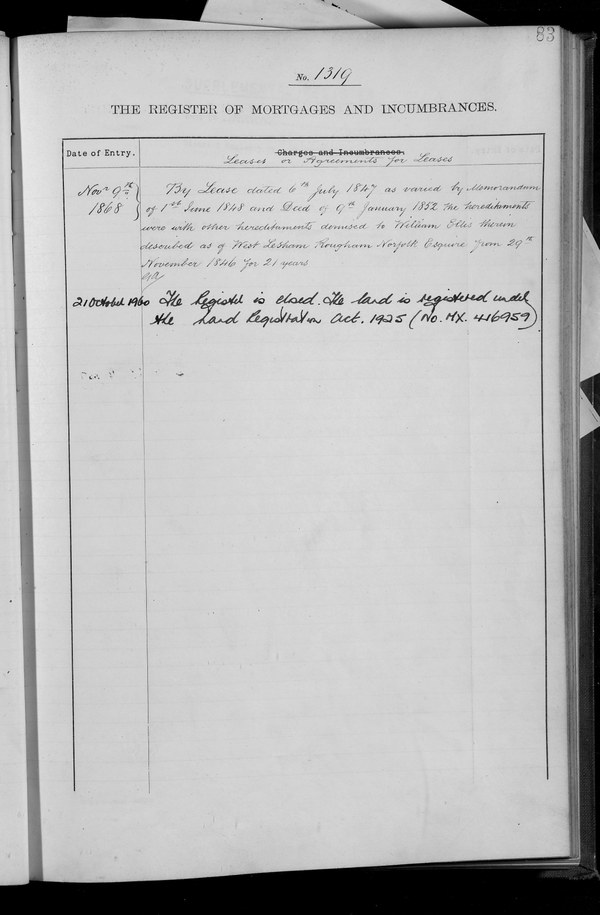 83
No. 1319
THE REGISTER OF MORTGAGES AND INCUMBRANCES.
Date of Entry.
Charges and Incumbrances.
Leases or Agreements for Leases
Novr 9th 1868
By Lease dated 6th July 1847 as varied by Memorandum
of 1st June 1848 and Deed of 9th January 1852 the hereditaments
were with other hereditaments demised to William Elles therein
described as of West Lexham Rougham Norfolk Esquire from 29th
November 1846 for 21 years
21 October 1960 The Register is closed. The land is registered under
the Land Registration Act. 1925 (No. MX. 416959)